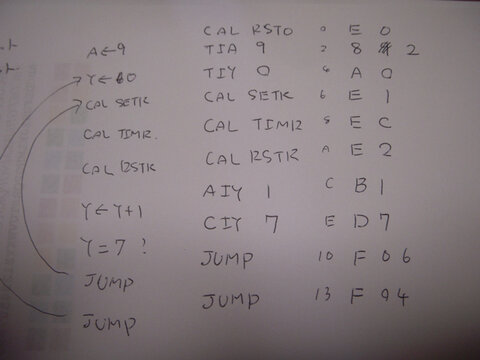 CAL RSTO 0 E 0
A←9 TIA 9 2 8 2
Y←0 TIY 0 4 A 0
CAL SETR CAL SETR 6 E 1
CAL TIMR. CAL TIMR 8 E C
CAL RSTR CAL RSTR A E 2
AIY 1 C B 1
Y←Y+1 CIY 7 E D 7
Y=7 ? JUMP 10 F 0 6
JUMP JUMP 13 F 0 4
JUMP